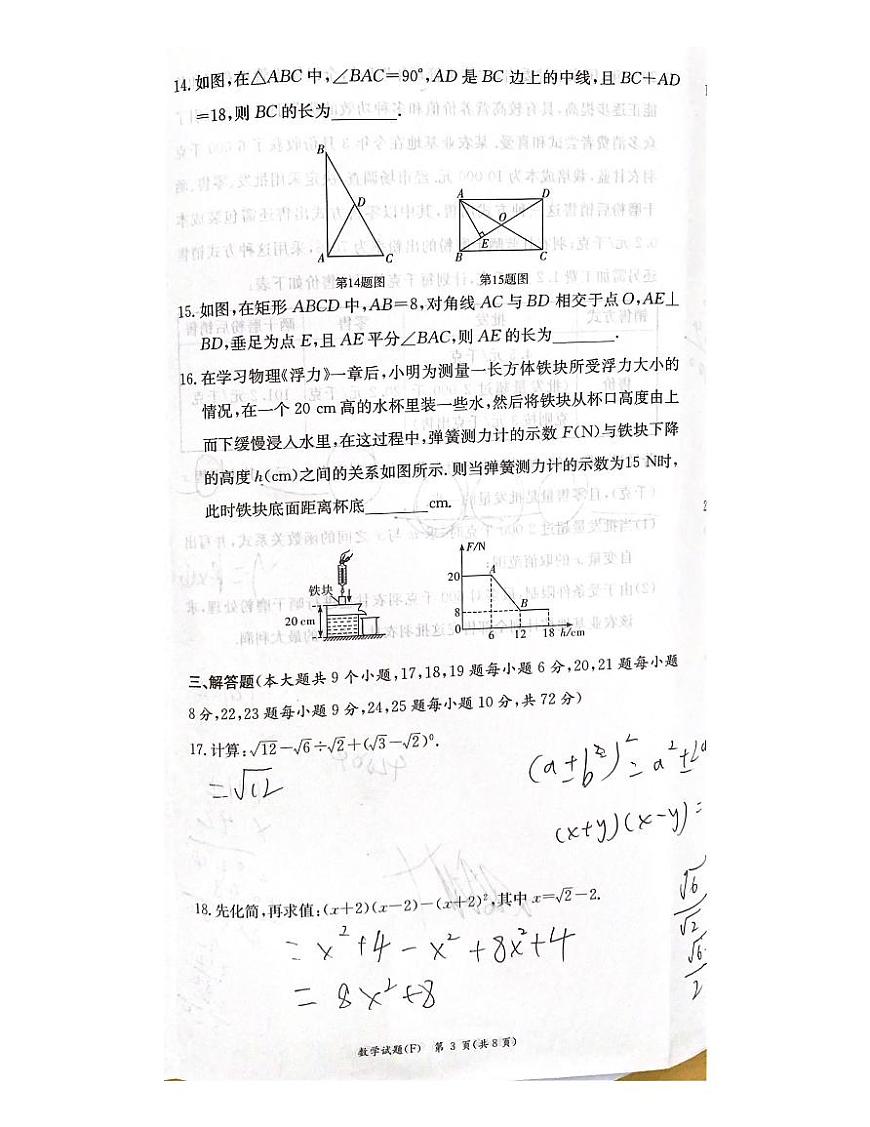 14. 如图,在△ABC 中,∠BAC=90°,AD 是 BC 边上的中线,且 BC+AD
=18,则 BC 的长为________.
B
D
A
C
第14题图
A
D
O
E
B
C
第15题图
15. 如图,在矩形 ABCD 中,AB=8,对角线 AC 与 BD 相交于点 O,AE⊥
BD,垂足为点 E,且 AE 平分∠BAC,则 AE 的长为________.
16. 在学习物理《浮力》一章后,小明为测量一长方体铁块所受浮力大小的
情况,在一个 20 cm 高的水杯里装一些水,然后将铁块从杯口高度由上
而下缓慢浸入水里,在这过程中,弹簧测力计的示数 F(N)与铁块下降
的高度 h(cm)之间的关系如图所示. 则当弹簧测力计的示数为15 N时,
此时铁块底面距离杯底________cm.
铁块
20 cm
F/N
20
A
8
B
0
6
12
18
h/cm
三、解答题(本大题共 9 个小题,17,18,19 题每小题 6 分,20,21 题每小题
8 分,22,23 题每小题 9 分,24,25 题每小题 10 分,共 72 分)
17. 计算:√12-√6÷√2+(√3-√2)⁰.
=√12
(x+y)(x-y)=
18. 先化简,再求值:(x+2)(x-2)-(x+2)²,其中 x=√2-2.
= x²+4 - x² + 8x²+4
= 8x²+8
√6
√2
√6
2
数学试题(F) 第 3 页(共 8 页)